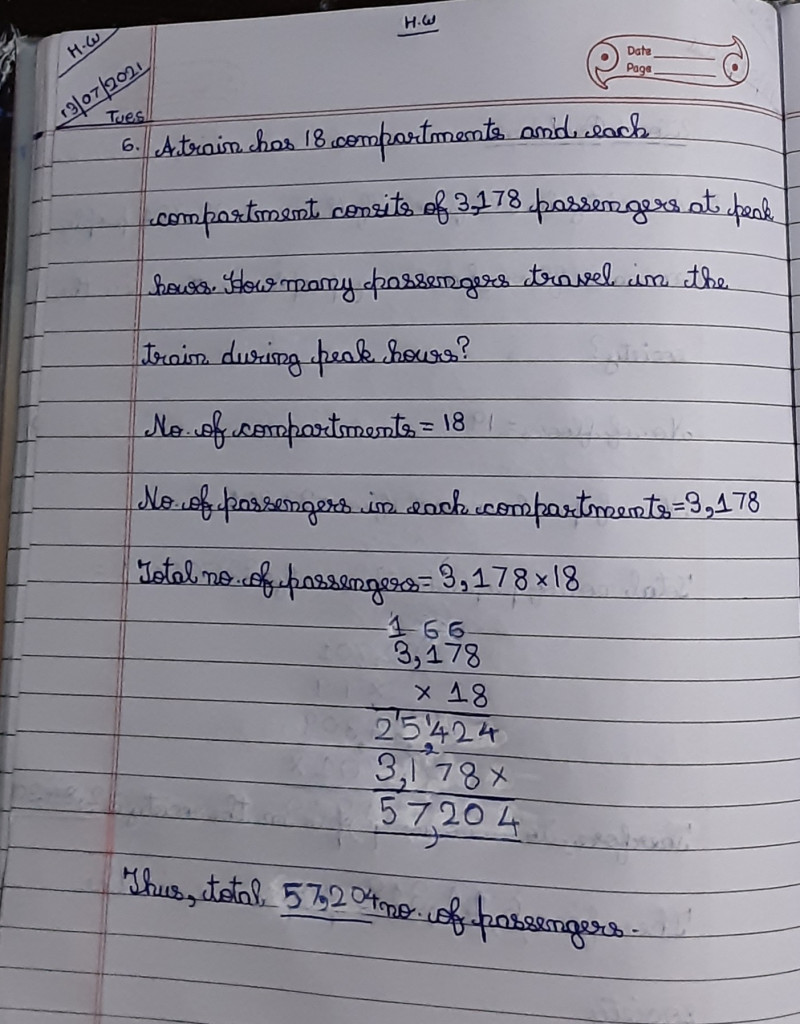 H.W
H.W
Date
Page
13/07/2021
Tues
6. A train has 18 compartments and each
compartment consits of 3,178 passengers at peak
hours. How many passengers travel in the
train during peak hours?
No. of compartments = 18
No. of passengers in each compartments = 3,178
Total no. of passengers = 3,178 × 18
1 6 6
3,178
× 18
25424
3,178×
57,204
Thus, total 57,204 no. of passengers.